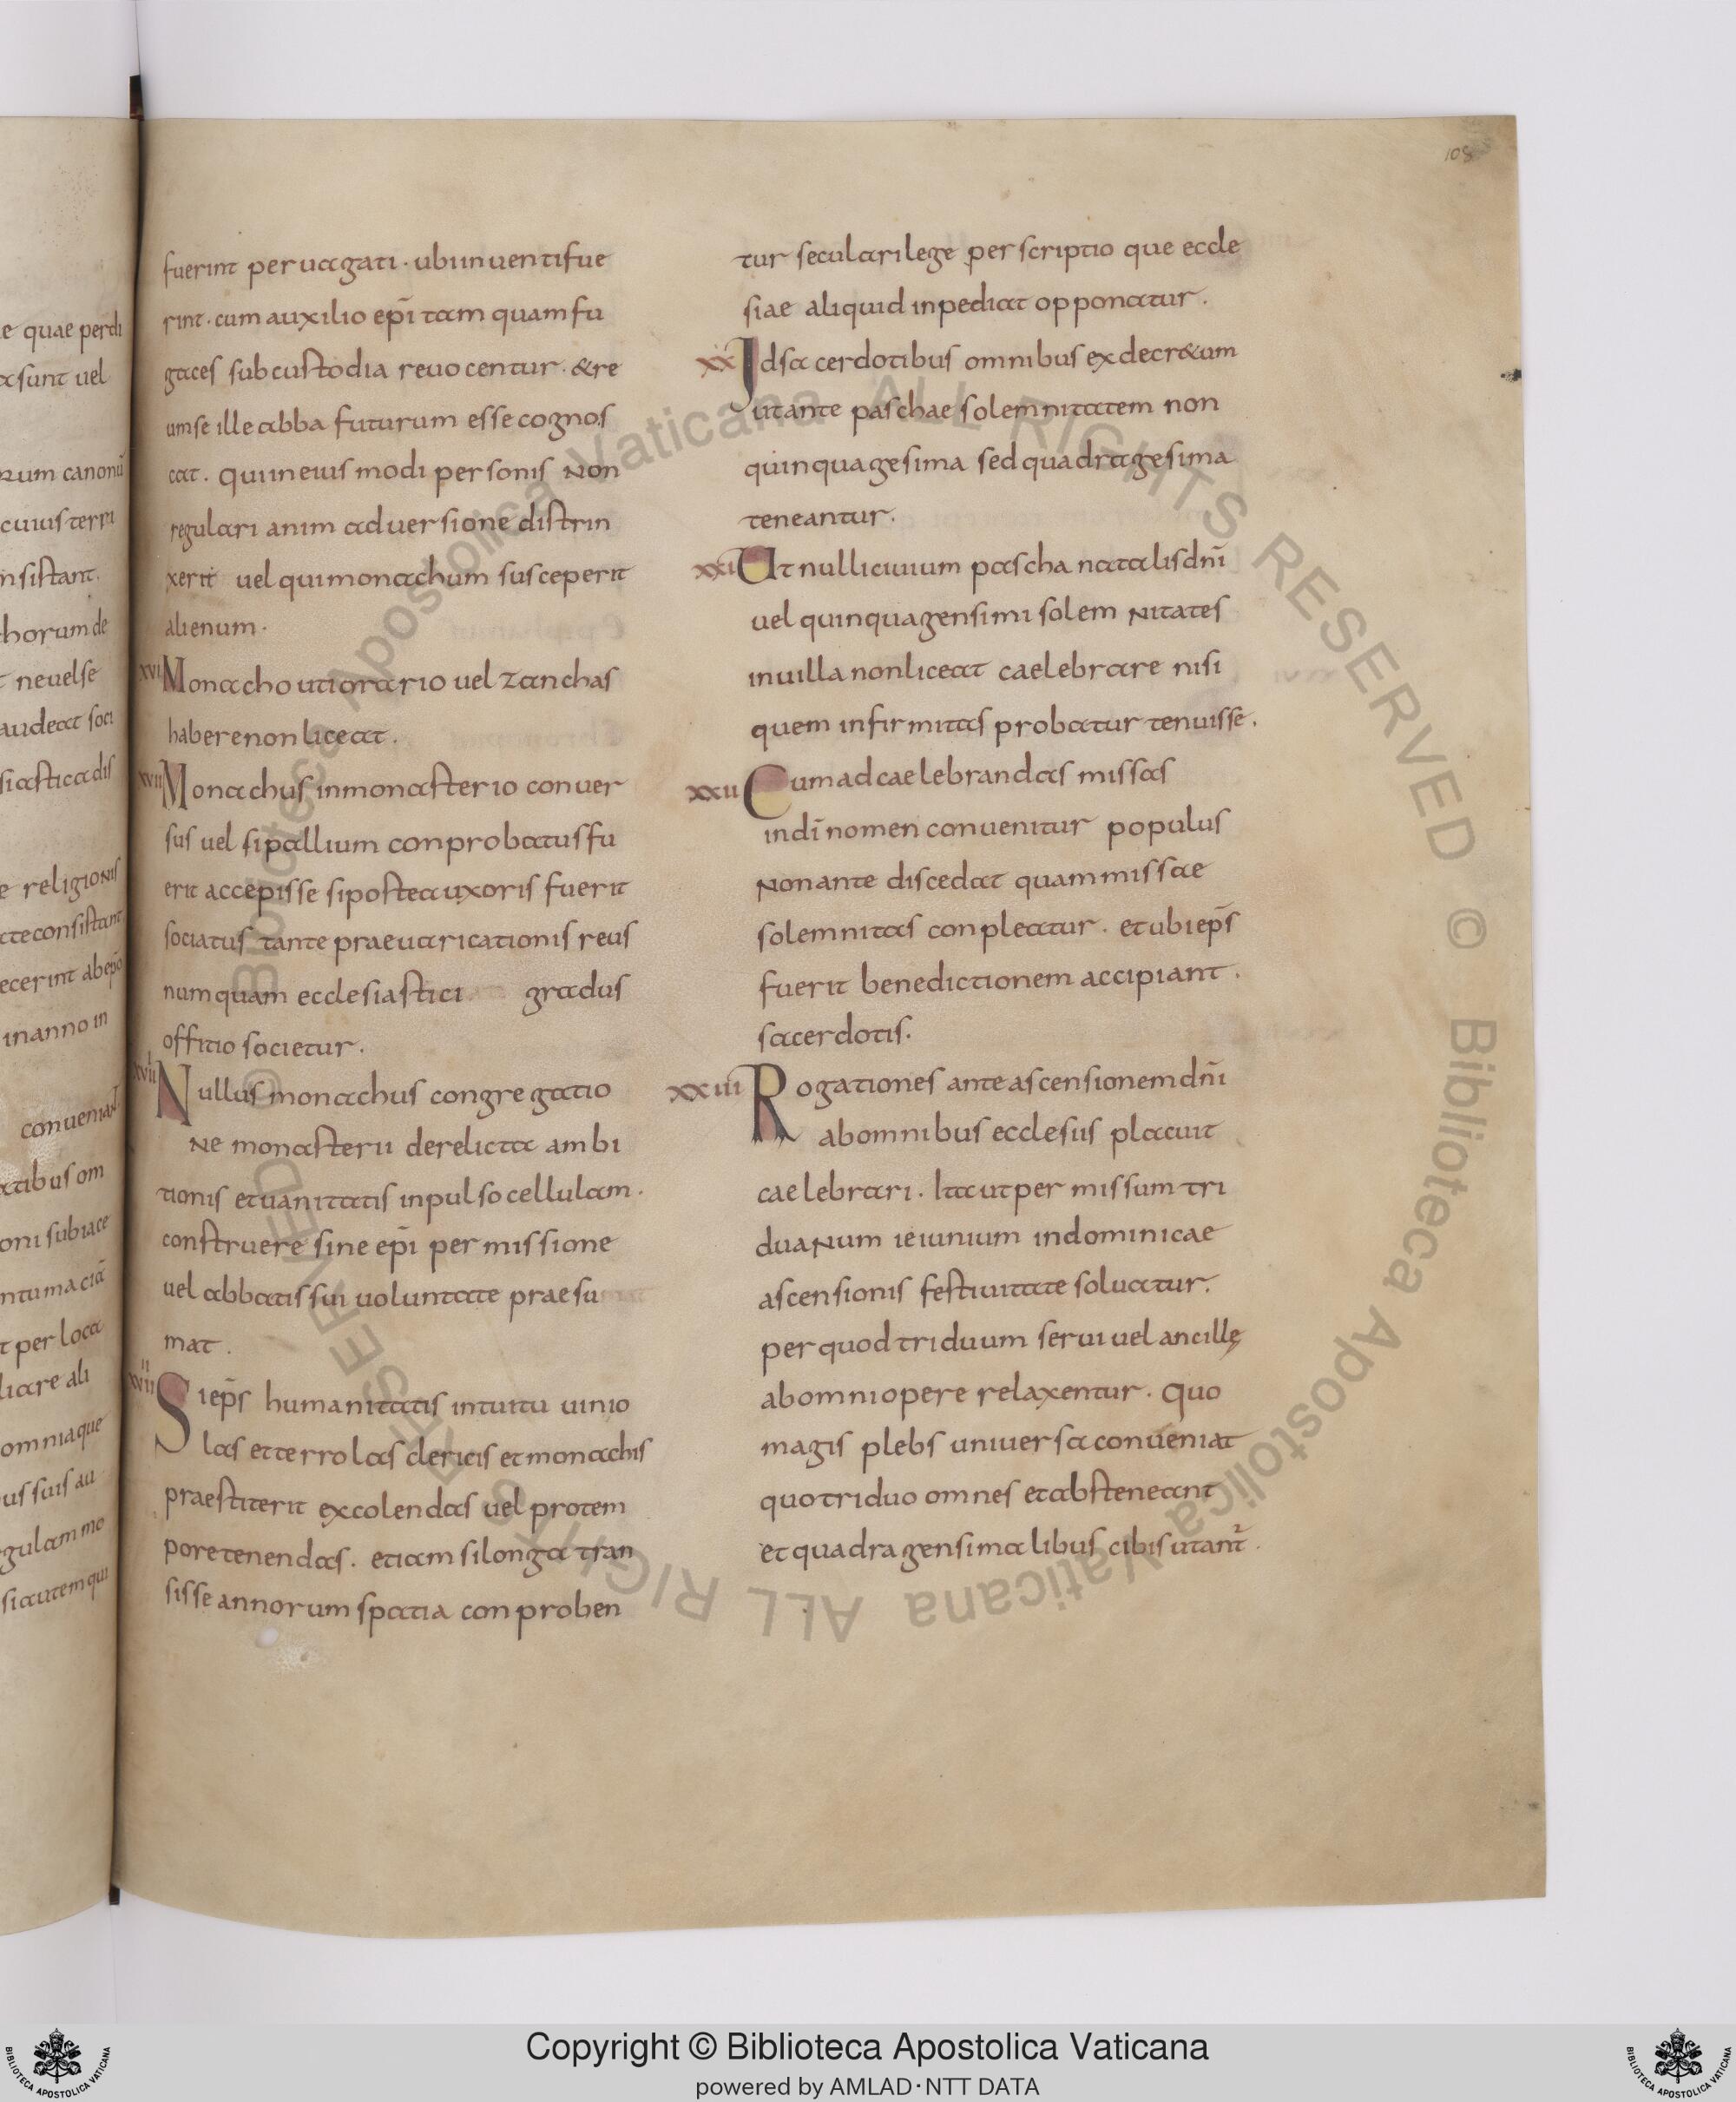 108
e quae perdi
asunt uel
rum canonū
cuiusterri
nsistant.
horum de
t neuelse
audeat soci
siasticadis
e religionis
ateconsistant
ecerint abepō
inanno in
conueniat
atibus om
oni subiace
ntumaciā
t per loca
liare ali
omniaque
us suis au
gulam mo
siautemqui
fuerint peruagati · ubiinuentifue
rint · cum auxilio epī tam quam fu
gaces sub custodia reuocentur · &re
umse ille abba futurum esse cognos
cat . Quiineiusmodi personis Non
regulari animaduersione distrin
xerit uel qui monachum susceperit
alienum ·
xvi Monacho uti orario uel zanchas
habere non liceat .
xvii Monachus in monasterio conuer
sus uel si pallium conprobatus fu
erit accepisse si postea uxoris fuerit
sociatus tante praeuaricationis reus
numquam ecclesiastici gradus
offitio societur .
xviii Nullus monachus congregatio
Ne monasterii derelicta ambi
tionis et uanitatis inpulso cellulam ·
construere sine epī permissione
uel abbatis sui uoluntate praesu
mat .
xviiii Si eps̄ humanitatis intuitu uinio
las et terrolas clericis et monachis
praestiterit excolendas uel pro tem
pore tenendas . etiam si longa tran
sisse annorum spatia conproben
tur seculari lege perscriptio que eccle
siae aliquid inpediat opponatur .
xx Id sacerdotibus omnibus ex decr&um
ut ante paschae solemnitatem non
quinquagesima sed quadragesima
teneantur .
xxi Ut nulli ciuium pascha natalis dn̄i
uel quinquagensimi solemNitates
in uilla non liceat caelebrare nisi
quem infirmitas probatur tenuisse .
xxii Cum ad caelebrandas missas
in dī nomen conuenitur populus
Non ante discedat quam missae
solemnitas conpleatur . et ubi eps̄
fuerit benedictionem accipiant .
sacerdotis .
xxiii Rogationes ante ascensionem dn̄i
ab omnibus ecclesiis placuit
caelebrari . Ita ut per missum tri
duaNum ieiunium in dominicae
ascensionis festiuitate soluatur .
per quod triduum serui uel ancillę
ab omni opere relaxentur . Quo
magis plebs uniuersa conueniat
quo triduo omnes et absteneant
et quadragensimalibus cibis utant̃ .
© Biblioteca Apostolica Vaticana ALL RIGHTS RESERVED © Biblioteca Apostolica Vaticana ALL RIGHTS RESERVED
Copyright © Biblioteca Apostolica Vaticana
powered by AMLAD·NTT DATA
BIBLIOTECA APOSTOLICA VATICANA
BIBLIOTECA APOSTOLICA VATICANA